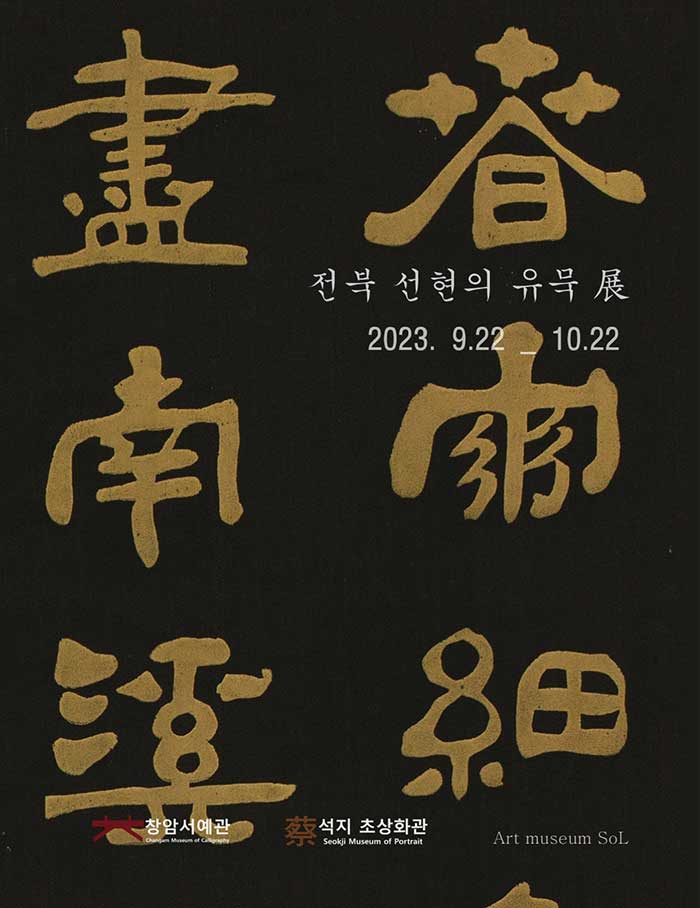 春雨細
盡南溪
전북 선현의 유묵 展
2023. 9.22 _ 10.22
창암서예관
Changam Museum of Calligraphy
蔡 석지 초상화관
Seokji Museum of Portrait
Art museum SoL